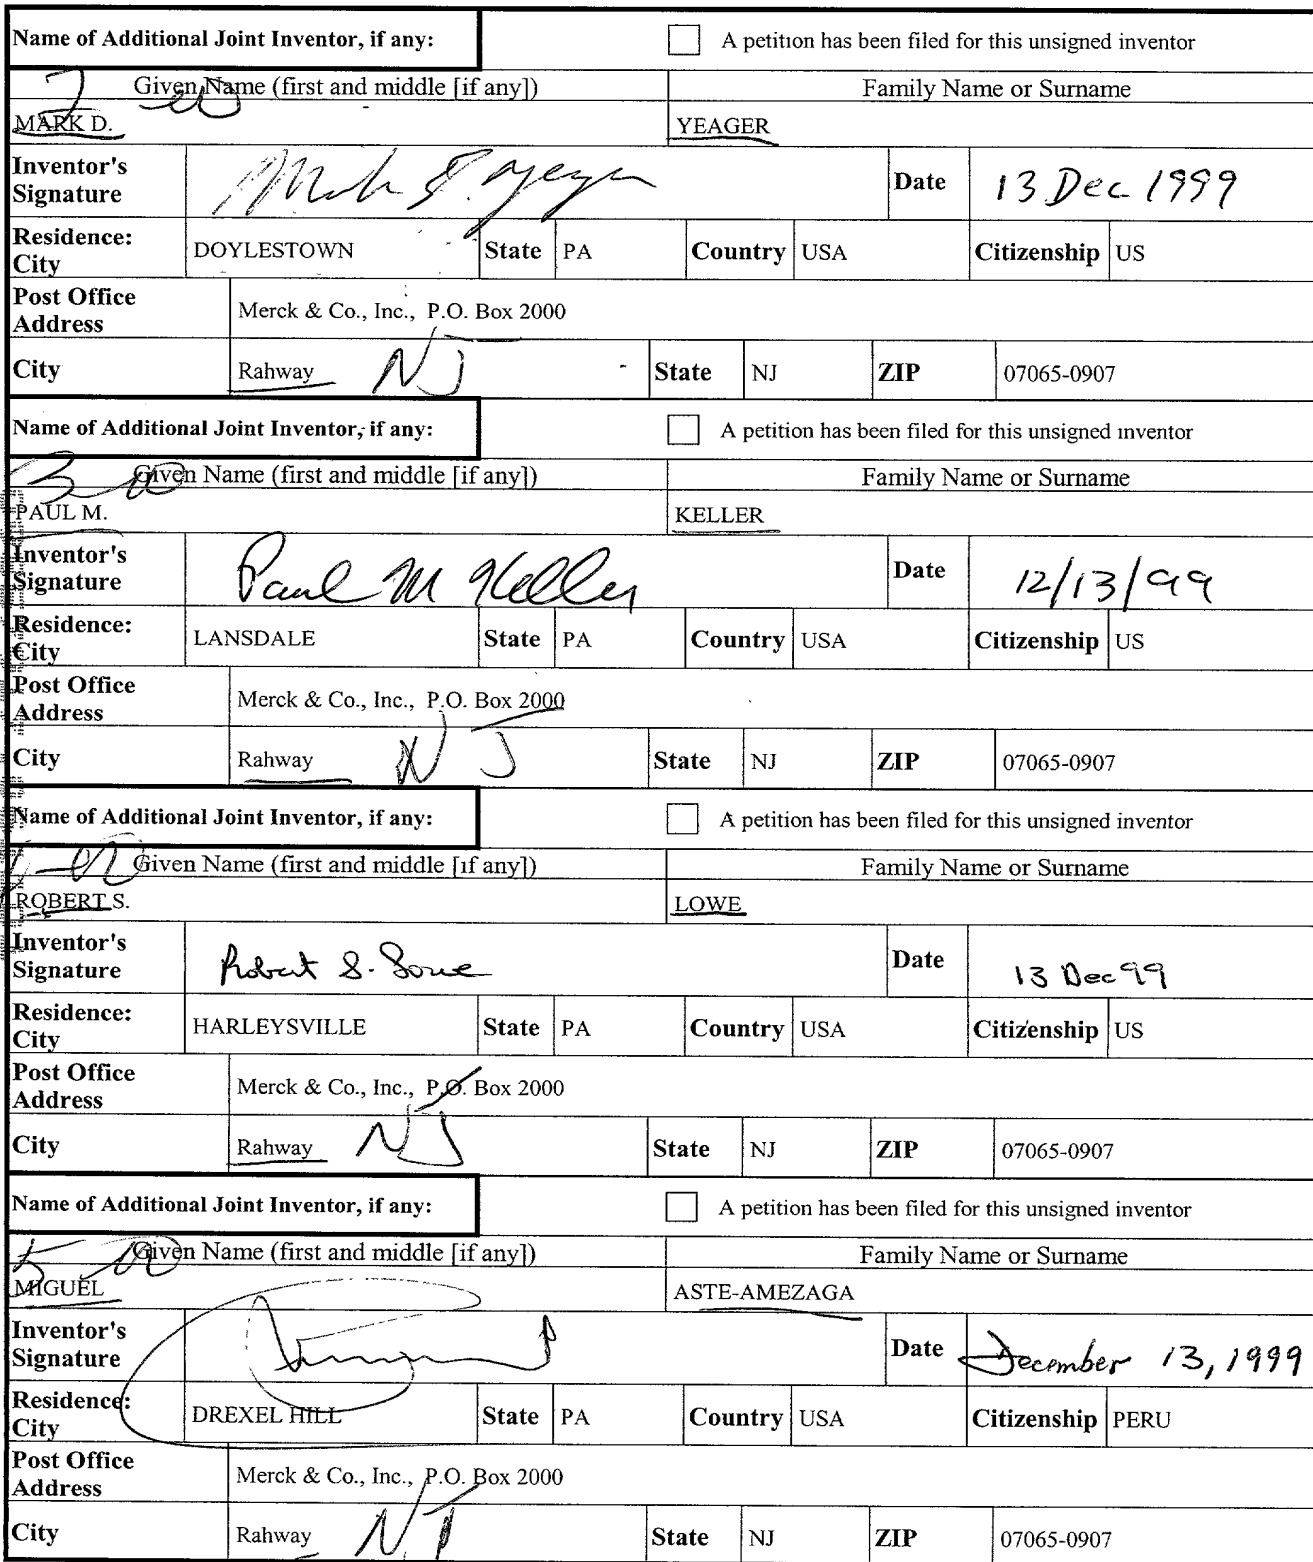 Name of Additional Joint Inventor, if any: A petition has been filed for this unsigned inventor
Given Name (first and middle [if any]) Family Name or Surname
MARK D. YEAGER
Inventor's Signature Date 13 Dec 1999
Residence: City DOYLESTOWN State PA Country USA Citizenship US
Post Office Address Merck & Co., Inc., P.O. Box 2000
City Rahway NJ State NJ ZIP 07065-0907
Name of Additional Joint Inventor, if any: A petition has been filed for this unsigned inventor
Given Name (first and middle [if any]) Family Name or Surname
PAUL M. KELLER
Inventor's Signature Paul M Keller Date 12/13/99
Residence: City LANSDALE State PA Country USA Citizenship US
Post Office Address Merck & Co., Inc., P.O. Box 2000
City Rahway NJ State NJ ZIP 07065-0907
Name of Additional Joint Inventor, if any: A petition has been filed for this unsigned inventor
Given Name (first and middle [if any]) Family Name or Surname
ROBERT S. LOWE
Inventor's Signature Robert S. Lowe Date 13 Dec 99
Residence: City HARLEYSVILLE State PA Country USA Citizenship US
Post Office Address Merck & Co., Inc., P.O. Box 2000
City Rahway NJ State NJ ZIP 07065-0907
Name of Additional Joint Inventor, if any: A petition has been filed for this unsigned inventor
Given Name (first and middle [if any]) Family Name or Surname
MIGUEL ASTE-AMEZAGA
Inventor's Signature Date December 13, 1999
Residence: City DREXEL HILL State PA Country USA Citizenship PERU
Post Office Address Merck & Co., Inc., P.O. Box 2000
City Rahway NJ State NJ ZIP 07065-0907